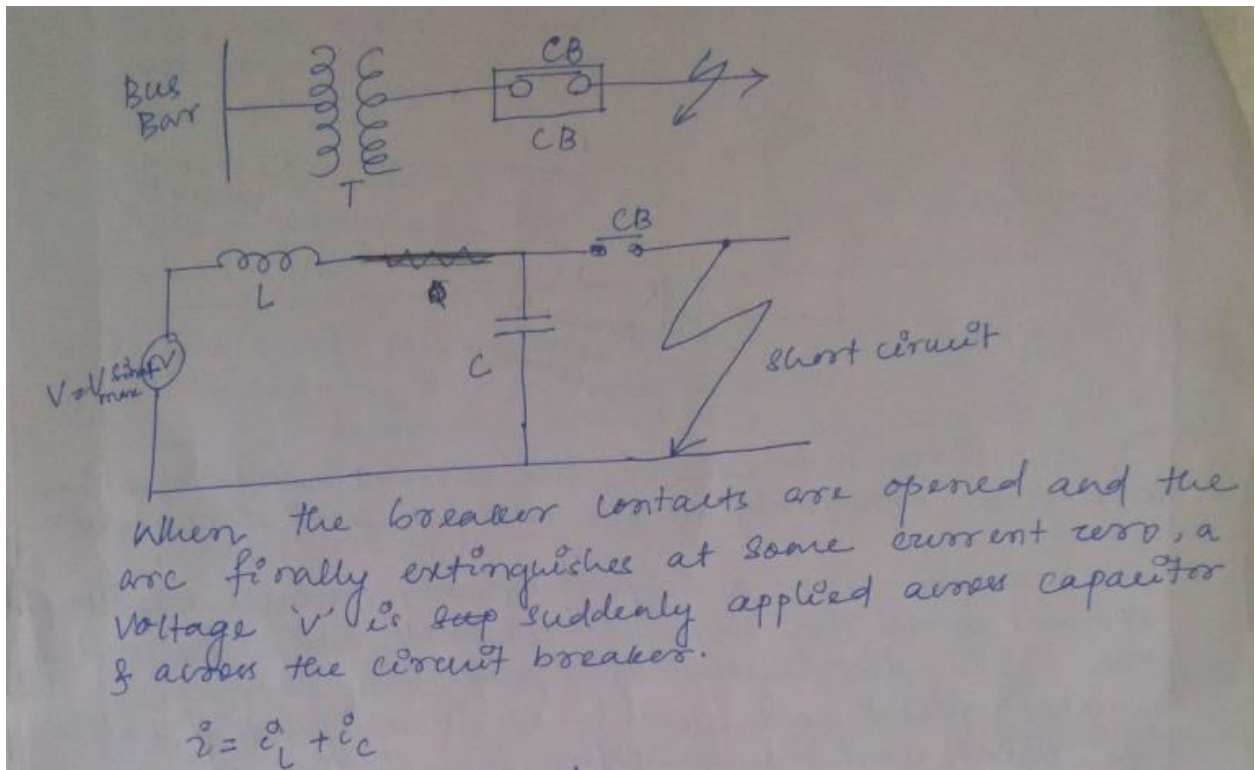 CB
Bus
Bar
CB
T
CB
L
C
short circuit
V = Vmax
When the breaker contacts are opened and the
arc finally extinguishes at some current zero, a
voltage 'v' is suddenly applied across capacitor
& across the circuit breaker.
i = i_L + i_c